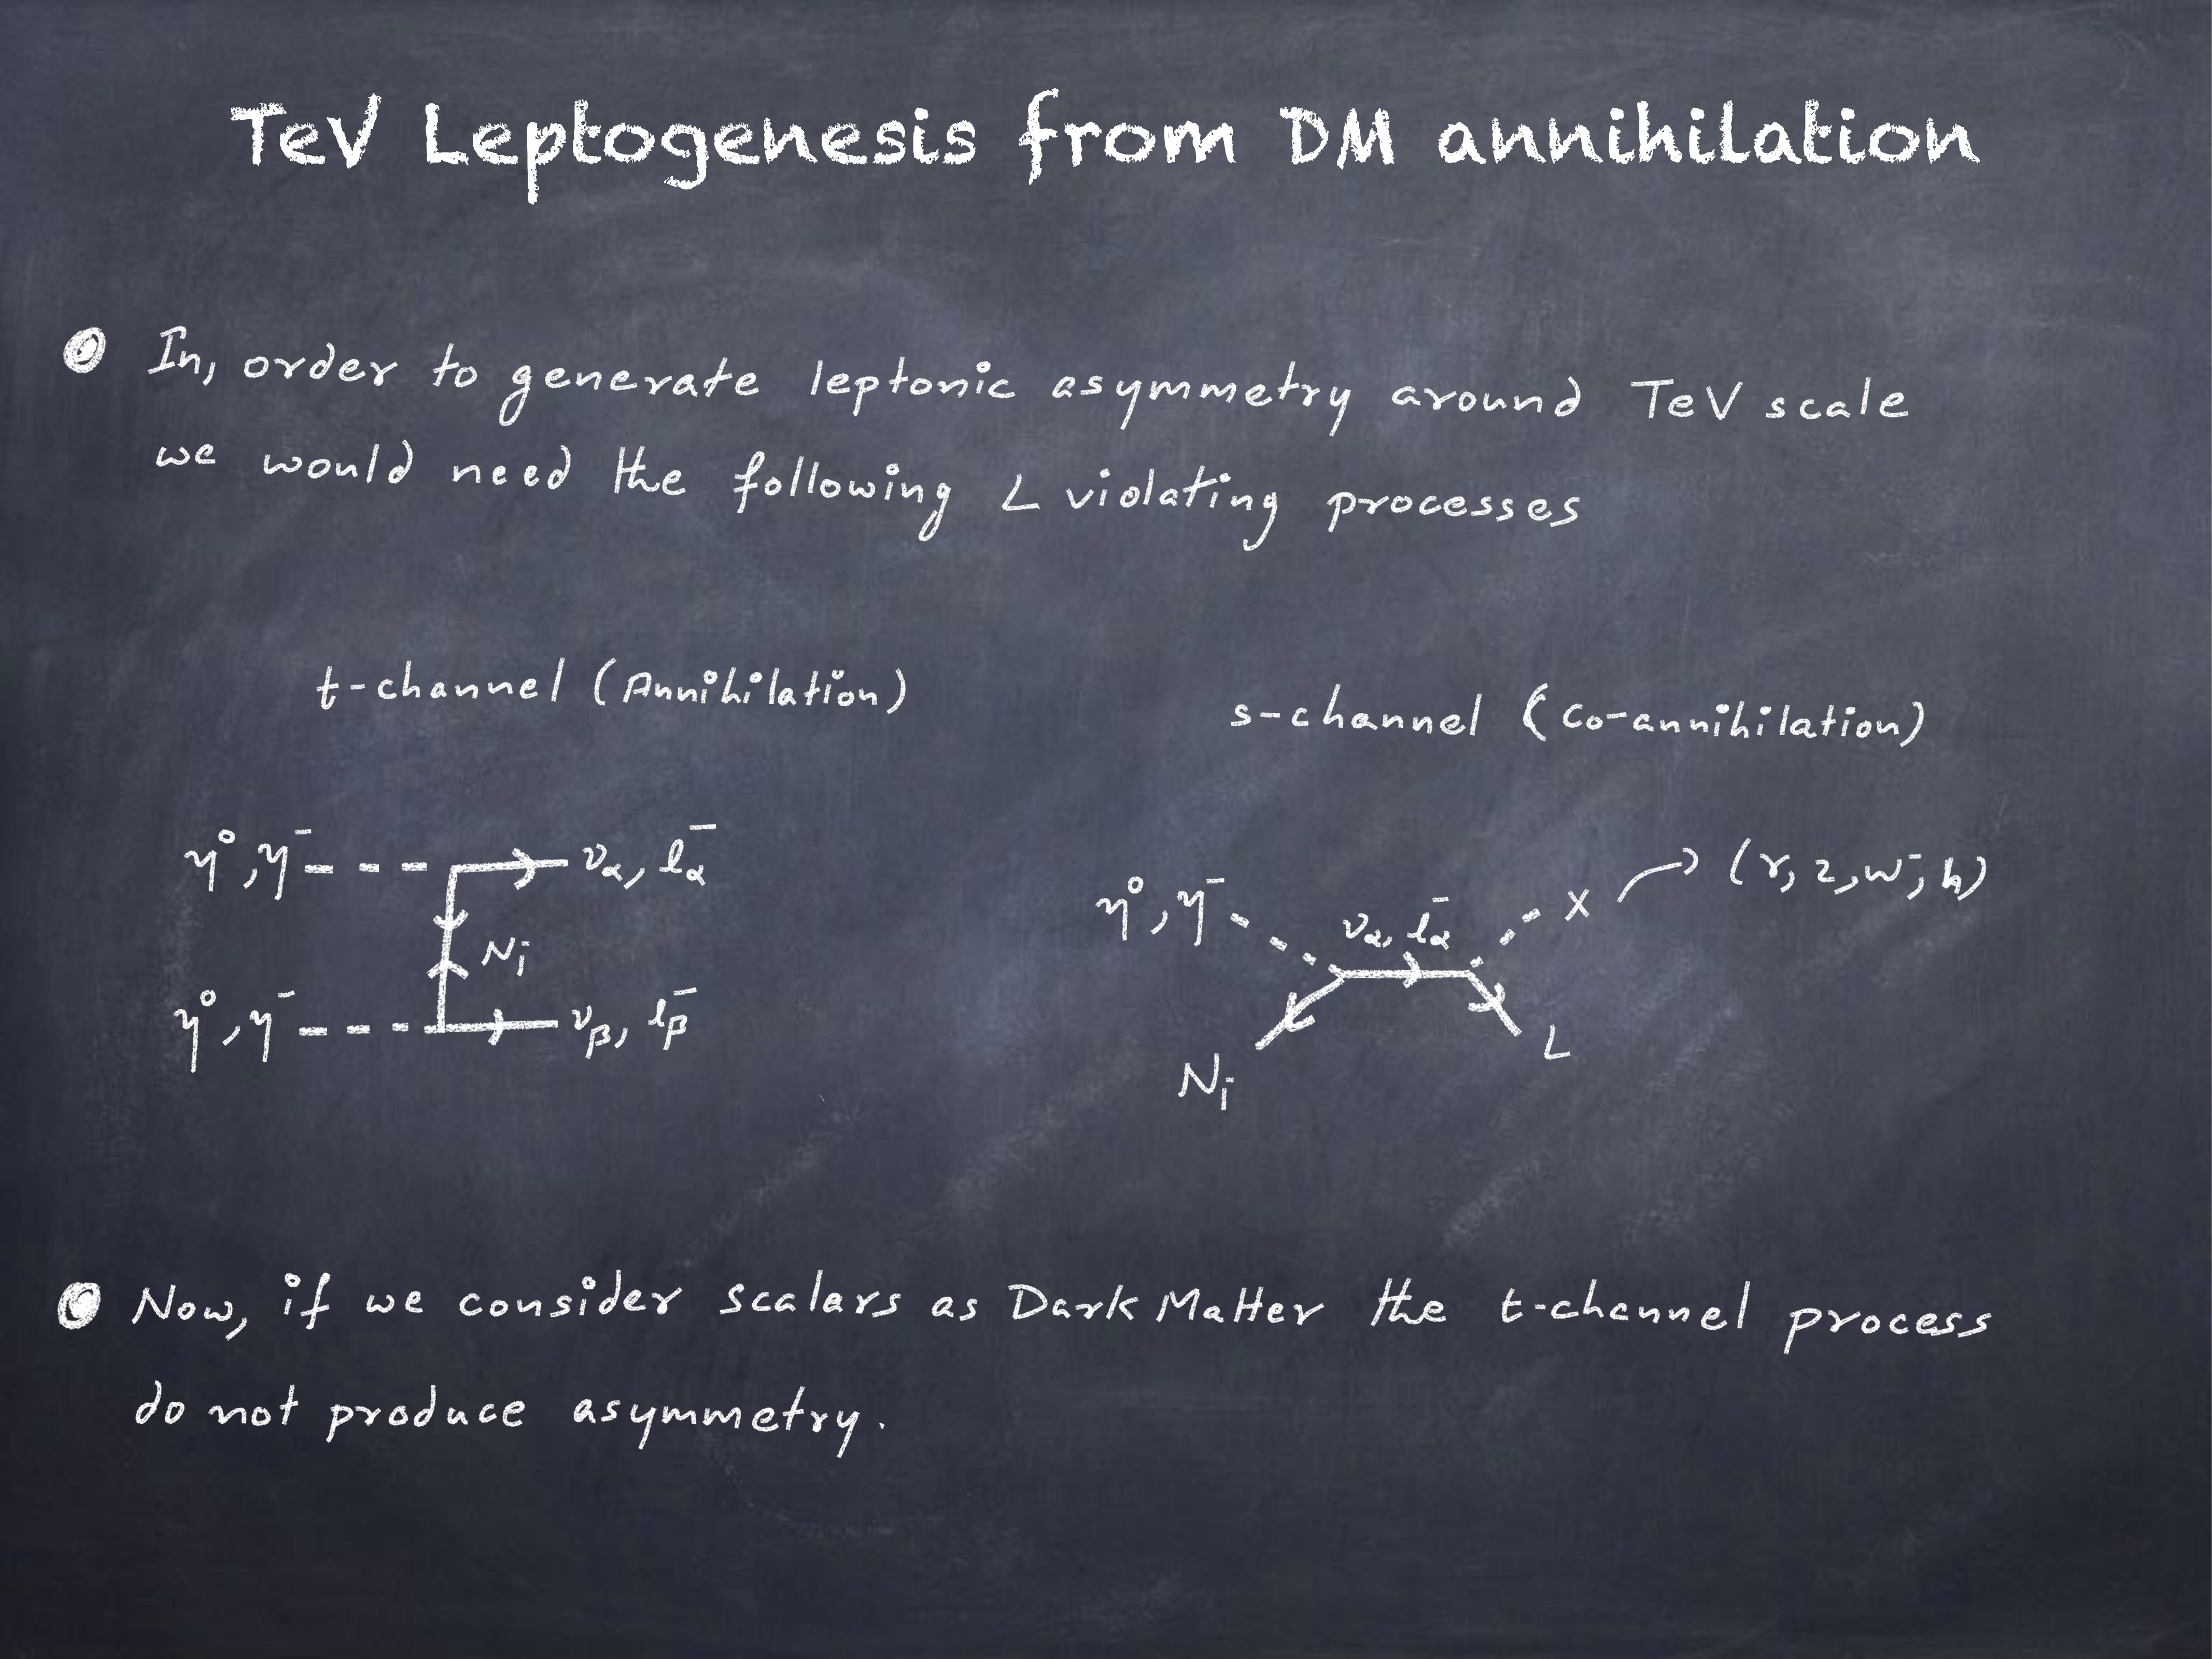 TeV Leptogenesis from DM annihilation
In, order to generate leptonic asymmetry around TeV scale
we would need the following L violating processes
t-channel (Annihilation)
s-channel (Co-annihilation)
η⁰, η⁻ να, lα⁻
Ni
η⁰, η⁻ νβ, lβ⁻
η⁰, η⁻ να, lα⁻ X (γ, Z, W⁻, h)
Ni L
Now, if we consider scalars as Dark Matter the t-channel process
do not produce asymmetry.